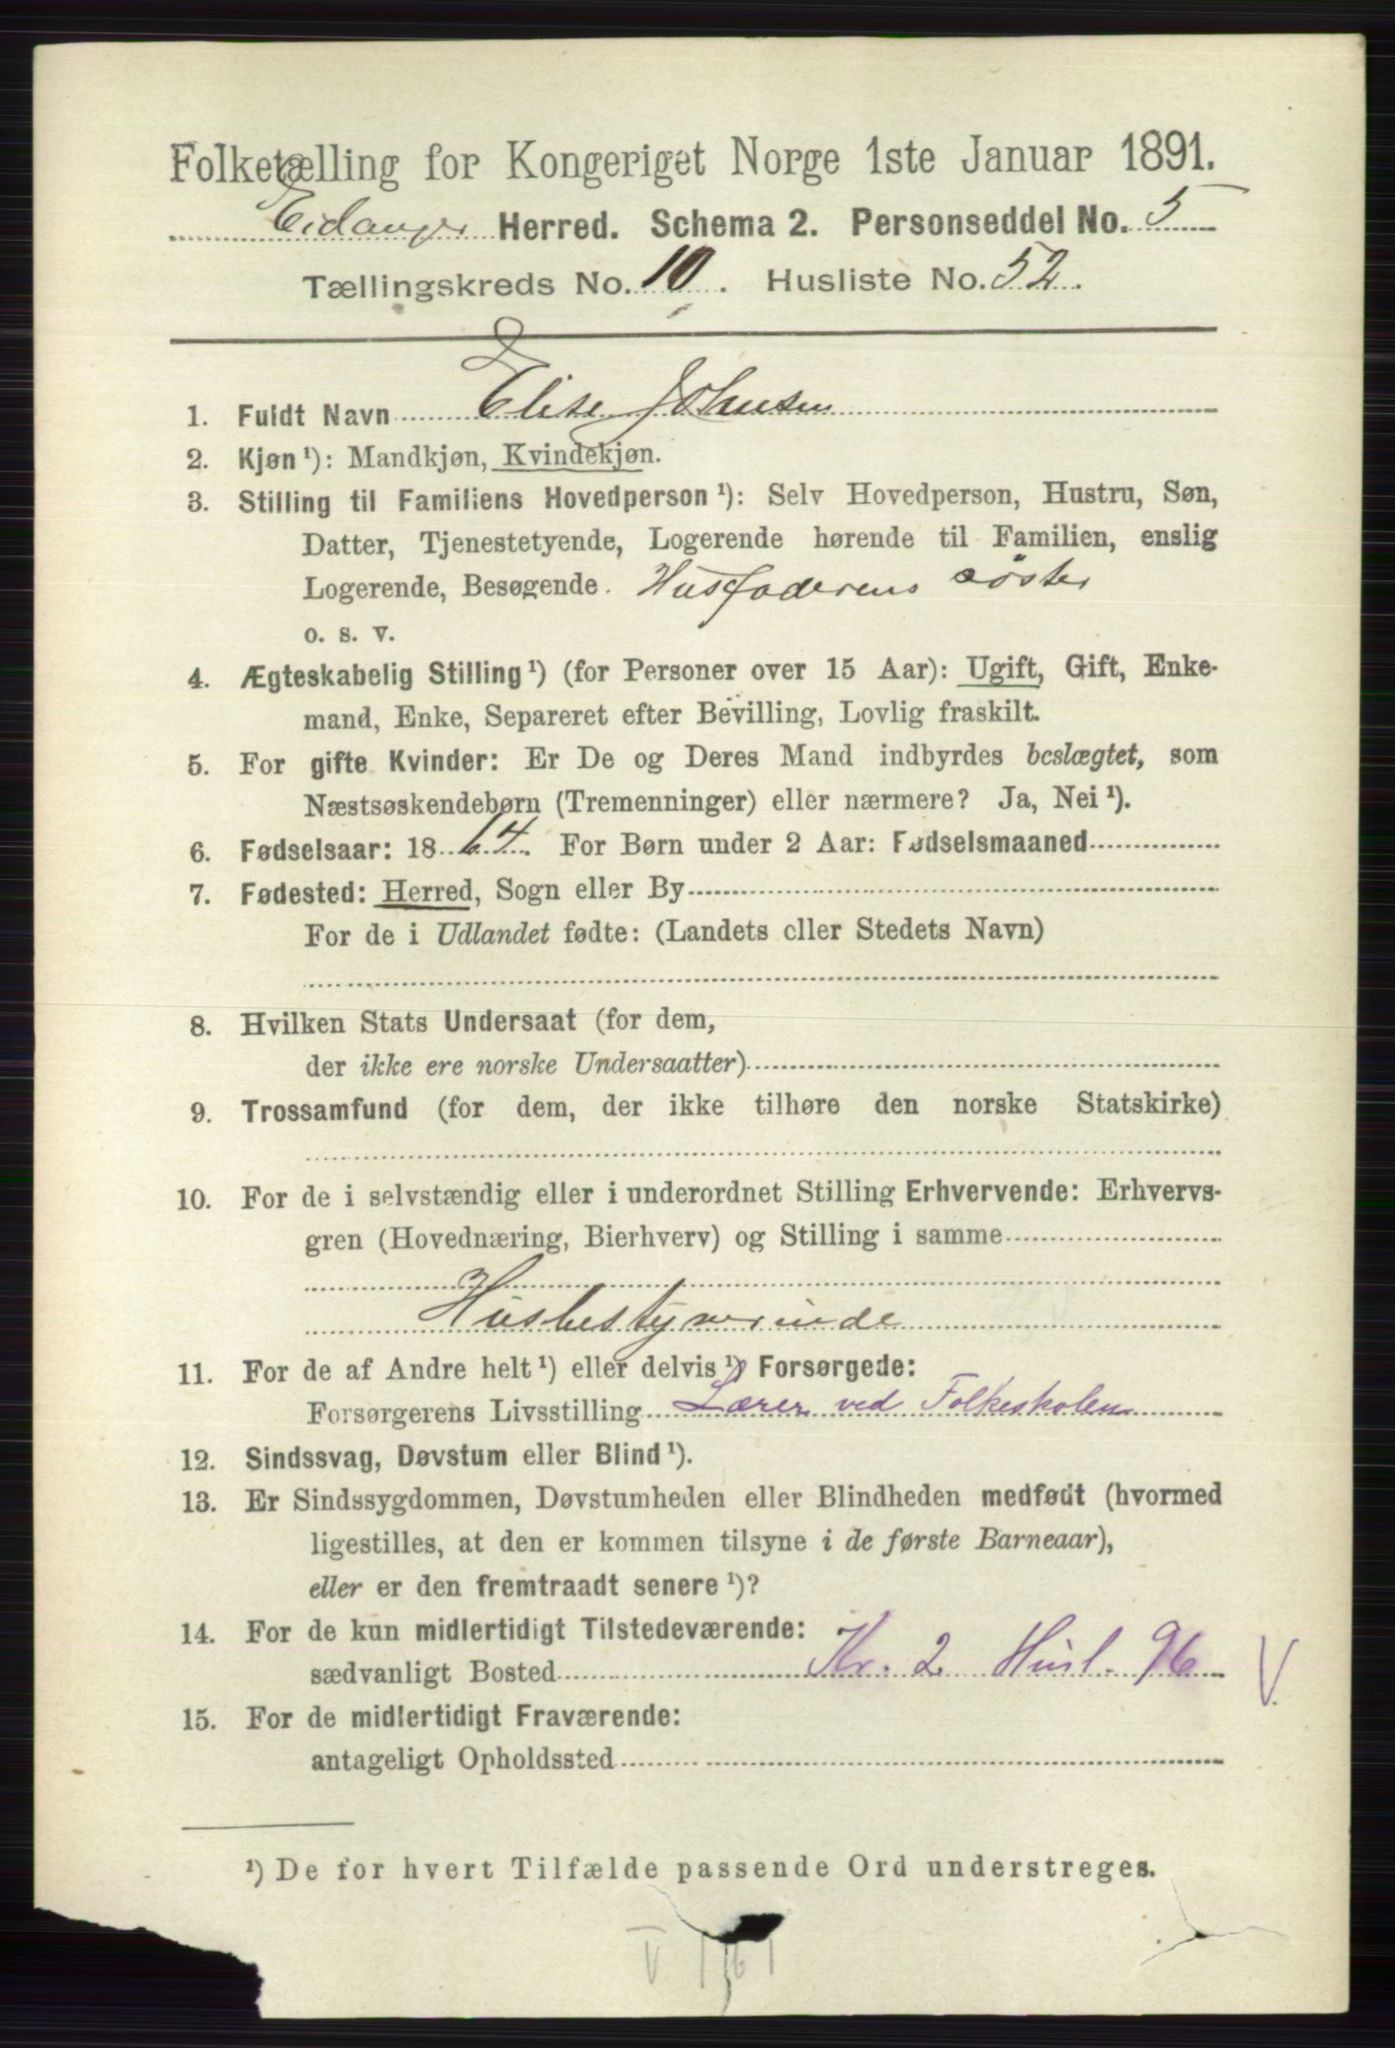 Folketælling for Kongeriget Norge 1ste Januar 1891.
Eidanger Herred. Schema 2. Personseddel No. 5
Tællingskreds No. 10. Husliste No. 52.
1. Fuldt Navn Elise Johnsen
2. Kjøn ¹): Mandkjøn, Kvindekjøn.
3. Stilling til Familiens Hovedperson ¹): Selv Hovedperson, Hustru, Søn,
Datter, Tjenestetyende, Logerende hørende til Familien, enslig
Logerende, Besøgende. Husfaderens søster
o. s. v.
4. Ægteskabelig Stilling ¹) (for Personer over 15 Aar): Ugift, Gift, Enke-
mand, Enke, Separeret efter Bevilling, Lovlig fraskilt.
5. For gifte Kvinder: Er De og Deres Mand indbyrdes beslægtet, som
Næstsøskendebørn (Tremenninger) eller nærmere? Ja, Nei ¹).
6. Fødselsaar: 1864. For Børn under 2 Aar: Fødselsmaaned
7. Fødested: Herred, Sogn eller By
For de i Udlandet fødte: (Landets eller Stedets Navn)
8. Hvilken Stats Undersaat (for dem,
der ikke ere norske Undersaatter)
9. Trossamfund (for dem, der ikke tilhøre den norske Statskirke)
10. For de i selvstændig eller i underordnet Stilling Erhvervende: Erhvervs-
gren (Hovednæring, Bierhverv) og Stilling i samme
Husbestyrerinde
11. For de af Andre helt ¹) eller delvis ¹) Forsørgede:
Forsørgerens Livsstilling Lærer ved Folkeskolen
12. Sindssvag, Døvstum eller Blind ¹).
13. Er Sindssygdommen, Døvstumheden eller Blindheden medfødt (hvormed
ligestilles, at den er kommen tilsyne i de første Barneaar),
eller er den fremtraadt senere ¹)?
14. For de kun midlertidigt Tilstedeværende:
sædvanligt Bosted Kr. 2 Husl. 96 V
15. For de midlertidigt Fraværende:
antageligt Opholdssted
¹) De for hvert Tilfælde passende Ord understreges.